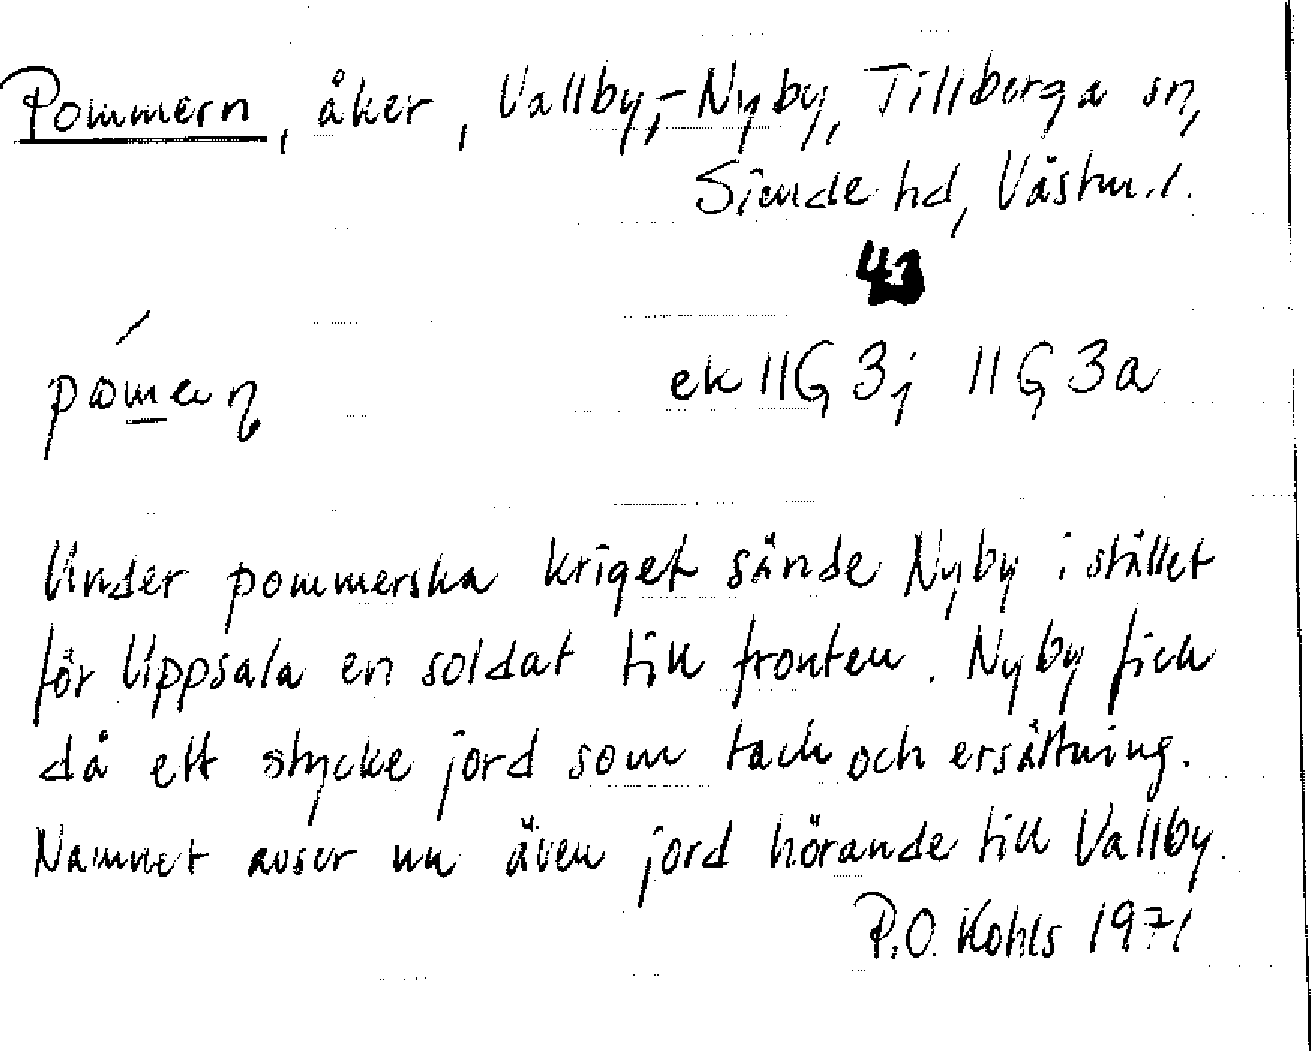 Pommern, åker, Vallby,-Nyby, Tillberga sn,
Siende hd, Västm.l.
43
ek 11G 3j 11G 3a
Under pommerska kriget sände Nyby i stället
för Uppsala en soldat till fronten. Nyby fick
då ett stycke jord som tack och ersättning.
Namnet avser nu även jord hörande till Vallby.
P.O. Kohls 1971